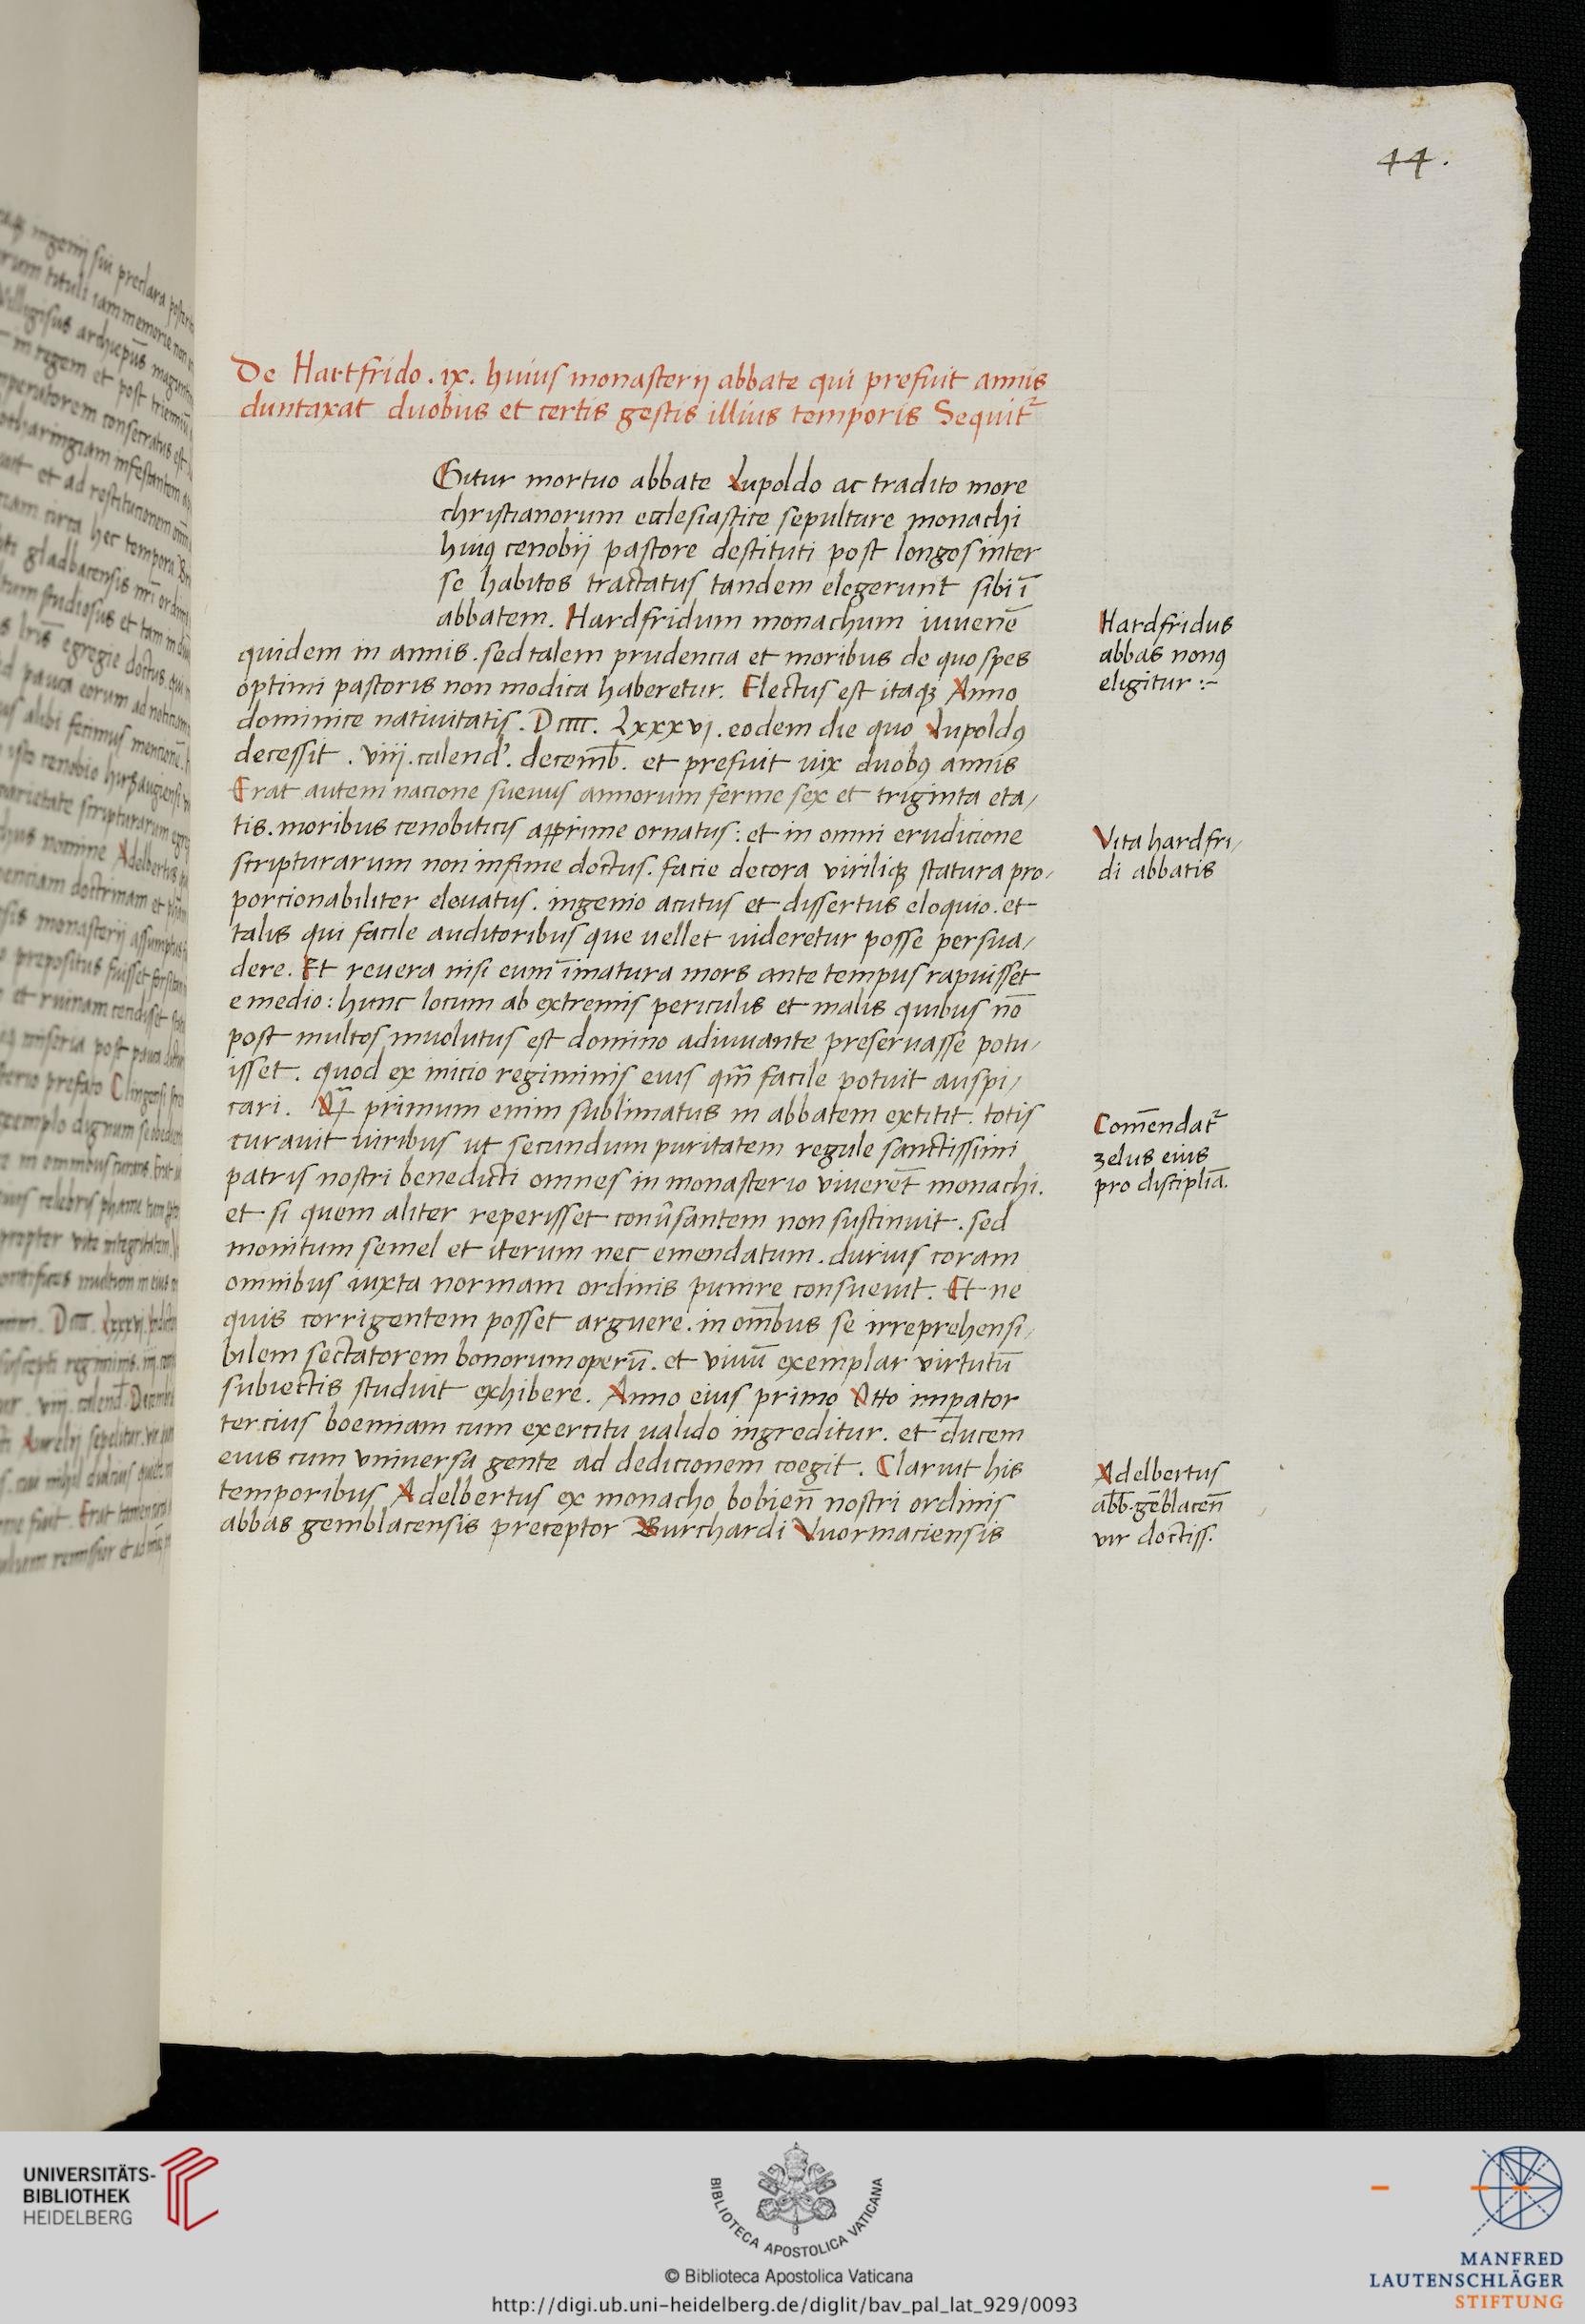 44.
De Hartfrido . ix. huius monasterij abbate qui prefuit annis
duntaxat duobus et certis gestis illius temporis Sequit᷑
Gitur mortuo abbate Lupoldo ac tradito more
christianorum ecclesiastice sepulture monachi
huiꝰ cenobij pastore destituti post longos inter
se habitos tractatus tandem elegerunt sibi ī
abbatem. Hardfridum monachum iuuenē
quidem in annis . sed talem prudencia et moribus de quo spes
optimi pastoris non modica haberetur. Electus est itaqꝫ Anno
dominice natiuitatis . Dcccc. Lxxxvj . eodem die quo Lupoldꝰ
decessit . viij . calend'. decemb̄. et prefuit uix duobꝰ annis
Erat autem nacione sueuus annorum ferme sex et triginta eta/
tis. moribus cenobiticis apprime ornatus : et in omni erudicione
scripturarum non infime doctus. facie decora viriliqꝫ statura pro/
porcionabiliter eleuatus . ingenio acutus et dissertus eloquio . et
talis qui facile auditoribus que uellet uideretur posse persua/
dere. Et reuera nisi eum īmatura mors ante tempus rapuisset
e medio : hunc locum ab extremis periculis et malis quibus nō
post multos inuolutus est domino adiuuante preseruasse potu/
isset. quod ex inicio regiminis eius qm̄ facile potuit auspi/
cari. primum enim sublimatus in abbatem extitit. totis
curauit uiribus ut secundum puritatem regule sanctissimi
patris nostri benedicti omnes in monasterio viuerēt monachi.
et si quem aliter reperisset conu̓santem non sustinuit . sed
monitum semel et iterum nec emendatum . durius coram
omnibus iuxta normam ordinis punire consueuit. Et ne
quis corrigentem posset arguere . in om̄bus se irreprehensi/
bilem sectatorem bonorum operū. et viuū exemplar virtutū
subiectis studuit exhibere. Anno eius primo Otto imꝑator
tercius boemiam cum exercitu ualido ingreditur. et ducem
eius cum vniuersa gente ad dedicionem coegit. Claruit his
temporibus Adelbertus ex monacho bobien̄ nostri ordinis
abbas gemblacensis preceptor Burchardi Vuormaciensis
Hardfridus
abbas nonꝰ
eligitur :~
Vita hardfri/
di abbatis
Com̄endat᷑
zelus eius
pro disciplīa.
Adelbertus
abb̄. gēblacen̄
vir doctiss.
UNIVERSITÄTS-
BIBLIOTHEK
HEIDELBERG
BIBLIOTECA APOSTOLICA VATICANA
© Biblioteca Apostolica Vaticana
http://digi.ub.uni-heidelberg.de/diglit/bav_pal_lat_929/0093
MANFRED
LAUTENSCHLÄGER
STIFTUNG